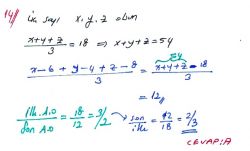 14) üç sayı x, y, z olsun
x+y+z / 3 = 18 ⇒ x+y+z = 54
x-6 + y-4 + z-8 / 3 = x+y+z - 18 / 3
54
= 12
ilk A.O / Son A.O = 18/12 = 3/2
son / ilk = 12/18 = 2/3
CEVAP: A